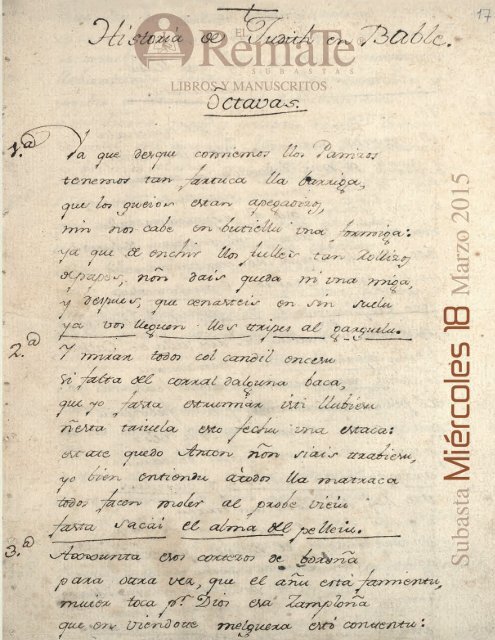 17
Historia de Judith en Bable.
EL
RemaTe
SUBASTAS
LIBROS Y MANUSCRITOS
Octavas.
1.ª Ya que desque comiemos llos Pamiros
tenemos tan fartuca lla barriga,
que los gueios estan apegadiros,
nin nos cabe en butiellu una formiga:
ya que de enchir llos fuelleis tan rollizos
depapes, nōn dais queda ni una miga,
y despues, que cenasteis en sin suelu
ya vos lleguen lles tripes al garguelu.
2.ª Y mirar todos col candil encesu
si falta del corral dalguna baca,
que yo fasta estrumar isti llubiesu
ñesta tañuela esto fechu una estaca:
estate quedo Anton ñon siais trabiesu,
yo bien entiendu à todos lla matraca
todos facen moler al probe vieiu
fasta sacai el alma del pelleiu.
3.ª Axxunta esos corteros de boroña
para otra vez, que el añu está famientu,
muier toca p.r Dios esa zamploña
que en viendote melguera estó contentu:
Subasta Miércoles 18 Marzo 2015